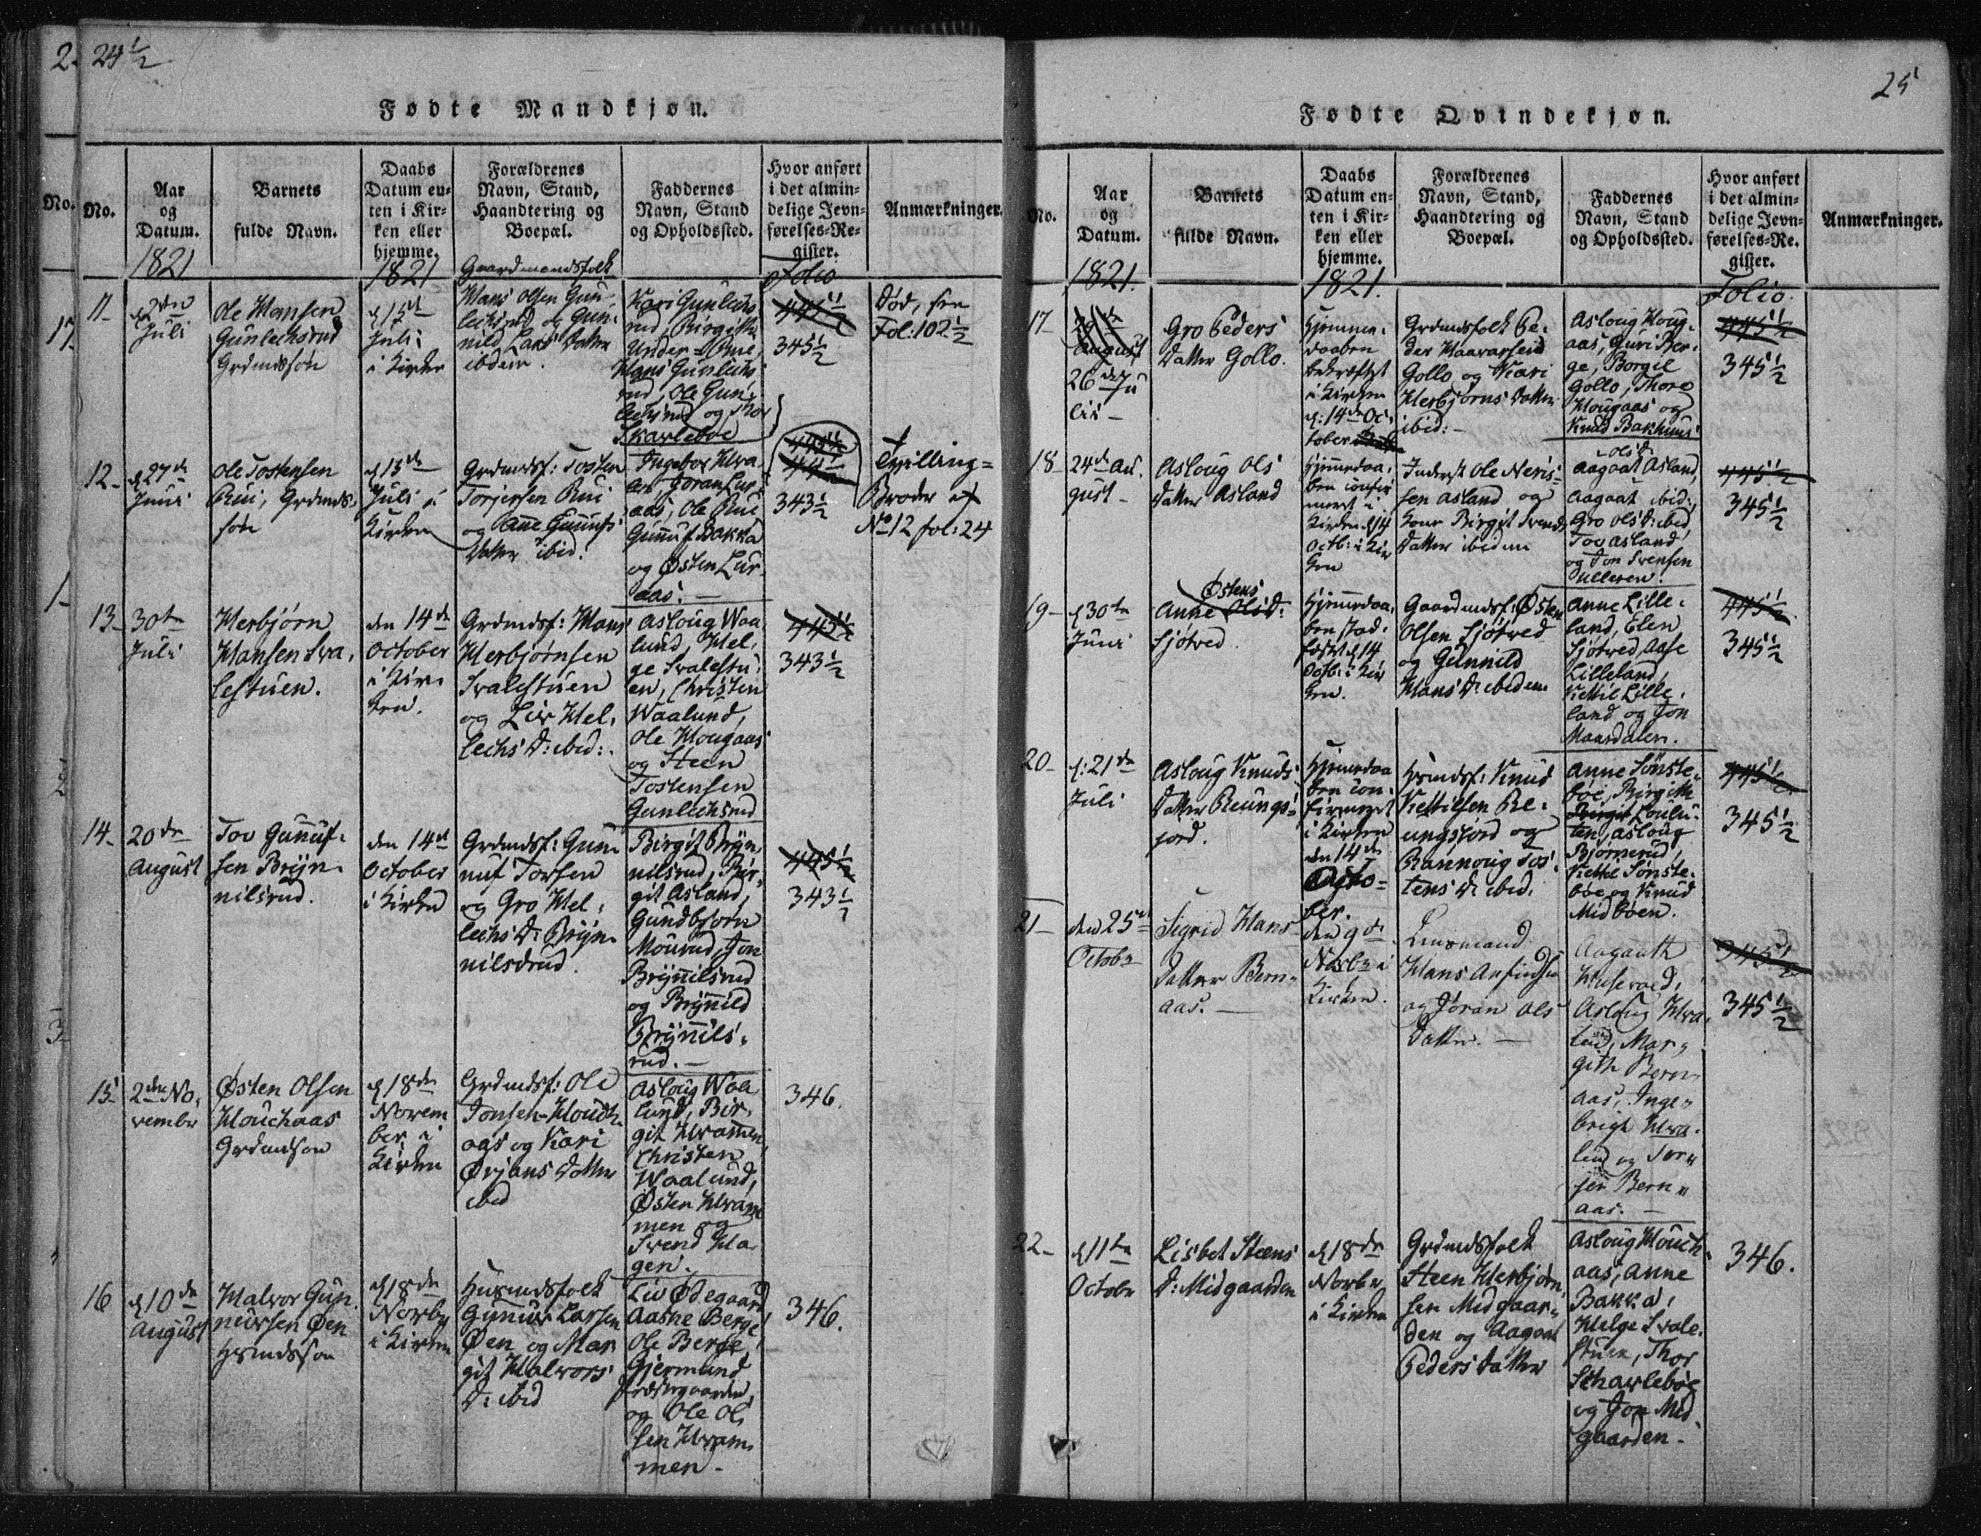 24 1/2
Fødte Mandkjøn.
No.
Aar
og
Datum.
Barnets
fulde Navn.
Daabs
Datum en-
ten i Kir-
ken eller
hjemme.
Forældrenes
Navn, Stand,
Haandtering og
Boepæl.
Faddernes
Navn, Stand
og Opholdssted.
Hvor anført
i det almin-
delige Jevn-
førelses-Re-
gister.
Anmærkninger.
1821
1821
Gaardmandsfolk
Folio
11-
d 2den
Juli
Ole Hansen
Gunlechsrud
Grdmdssøn
d 15de
Juli i
Kirken
Hans Olsen Gun-
lechsrud og Gun-
nild Lars Datter
ibidem.
Kari Gunlechs
rud, Birgith
Under-Rue,
Hans Gunlechs
rud, Ole Gun-
lechsrud og Thor
Skarleboe
445 1/2
345 1/2
Død, see
Fol: 102 1/2
12-
d 27de
Juni
Ole Tostensen
Rui, Grdmds-
søn
d 15de
Juli i
Kirken
Grdmdsf: Tosten
Torjersen Rui
og Anne Gunnufs
Datter ibid:
Ingebor Hva-
len, Joran Lur-
aas, Ole Rue
Gunnuf Bakka
og Østen Lur-
aas. —
343 1/2
Tvilling=
Broder af
No 12 fol: 24
13-
30te
Juli
Herbjørn
Hansen Sva-
lestuen.
den 14de
October
i Kir-
ken.
Grdmdsf: Hans
Herbjørnsen
Svalestuen
og Liv Hel-
lechs D: ibid:
Asloug Waa
lund, Hel-
ge Svalestu-
en, Christen
Waalund,
Ole Hougaas
og Steen
Tostensen
Gunlechsrud
445 1/2
343 1/2
14-
20de
August
Tov Gunuf-
sen Bryn-
nilsrud.
den 14de
October
i Kirken
Grdmdsf: Gun-
nuf Torsen
og Gro Hel-
lechs D: Bryn-
nilsdrud.
Birgit Bryn
nilsrud, Bir-
git Asland,
Gundbjorn
Mourud, Jon
Brynnilsrud
og Brynnild
Brynnils-
rud. —
445 1/2
343 1/2
15
2den No-
vembr
Østen Olsen
Houchaas
Grdmdson
d 18de
Novem
ber i
Kirken
Grdmdsf: Ole
Jonsen Houch-
aas og Kari
Ørjans Datter
ibid
Asloug Waa
lund, Bir-
git Hvammen,
Christen
Waalund,
Østen Hvam
men og
Svend Ha
gen.
346.
16
d 10de
August
Halvor Gun-
nursen Øen
Hsmdsson
d 18de
Novbr
i Kirken
Husmdsfolk
Gunnur Larsen
Øen og Mar
git Halvors
D: ibid
Liv Ødegaard
Aasne Berge
Ole Berge,
Gjermund
og Ole Ol-
sen Hvam-
men -
346.
25
Fødte Qvindekjøn.
No.
Aar
og
Datum.
Barnets
fulde Navn.
Daabs
Datum en-
ten i Kir-
ken eller
hjemme.
Forældrenes
Navn, Stand,
Haandtering og
Boepæl.
Faddernes
Navn, Stand
og Opholdssted.
Hvor anført
i det almin-
delige Jevn-
førelses-Re-
gister.
Anmærkninger.
1821.
1821.
Folio.
17-
August
26de Ju
lii —
Gro Peders
Datter Gollo.
Hjemme-
daaben
bekræftet
i Kirken
d: 14de Oc-
tober
Grdmdsfolk Pe-
der Haavarsen
Gollo og Kari
Herbjørns Datter
ibid: -
Asloug Houg-
aas, Guri Ber-
ge, Borgil
Gollo, Thore
Hougaas og
Knud Bakhuus
445 1/2
345 1/2
18-
24de Au-
gust -
Asloug Ols
Datter Asland
Hjemmedaa-
ben confir
meret i
Kirken d 14
Octb: i Kir
ken
Inderst Ole Neris-
sen Asland og
Kone Birgit Svends
Datter ibidem
Olsd:
Aagaat Asland,
Aagaat ibid:,
Gro Ols D: ibid
Tov Asland
og Jon Svensen
Ulleren.
445 1/2
345 1/2
19-
d 30te
Juni
Østens
Anne Ols D:
Sjøtved.
Hjemmedaa-
ben stad-
fæstet d 14
Octb: i Kir
ken.
Gaardmdsf: Østen
Olsen Sjøtved
og Gunnild
Hans D: ibidem
Anne Lille-
land, Elen
Sjøtved, Aase
Lilleland,
Kittil Lille-
land og Jon
Maardalen.
445 1/2
345 1/2
20-
d: 21de
Juli
Asloug Knuds
Datter Reungs-
jord.
Hjemmedaa
ben con-
firmeret
i Kirken
den 14de
Octo=
ber.
Hsmdsf: Knud
Kittilsen Re-
ungsjord og
Rannoug Tos-
tens D: ibid.
Anne Sønste-
bøe, Birgith
Loulu-
ten, Asloug
Bjørnerud,
Kittil Sønste-
bøe og Knud
Midbøen.
445 1/2
345 1/2
21-
den 25de
Octobr
Sigrid Hans
Datter Bern-
aas. —
den 9de
Novbr i
Kirken.
Lensmand
Hans Anfindsen
og Jøran Ols
Datter. —
Aagaath
Huseved,
Asloug Hva-
lund, Mar-
gith Bern
aas, Inge-
brigt Hva-
lind og Tor-
jer Bern-
aas. —
345 1/2
345 1/2
22-
d 11te
Octobr
Lisbet Steens
D: Midgaarden
d 18de
Novbr
i Kirken
Grdmdsfolk
Steen Herbjørn-
sen Midgaar-
den og Aagaat
Peders Datter
Asloug Houch-
aas, Anne
Bakka,
Helge Svale-
stuen, Thor
Scharlebøe
og Jon Mid-
gaarden -
346.